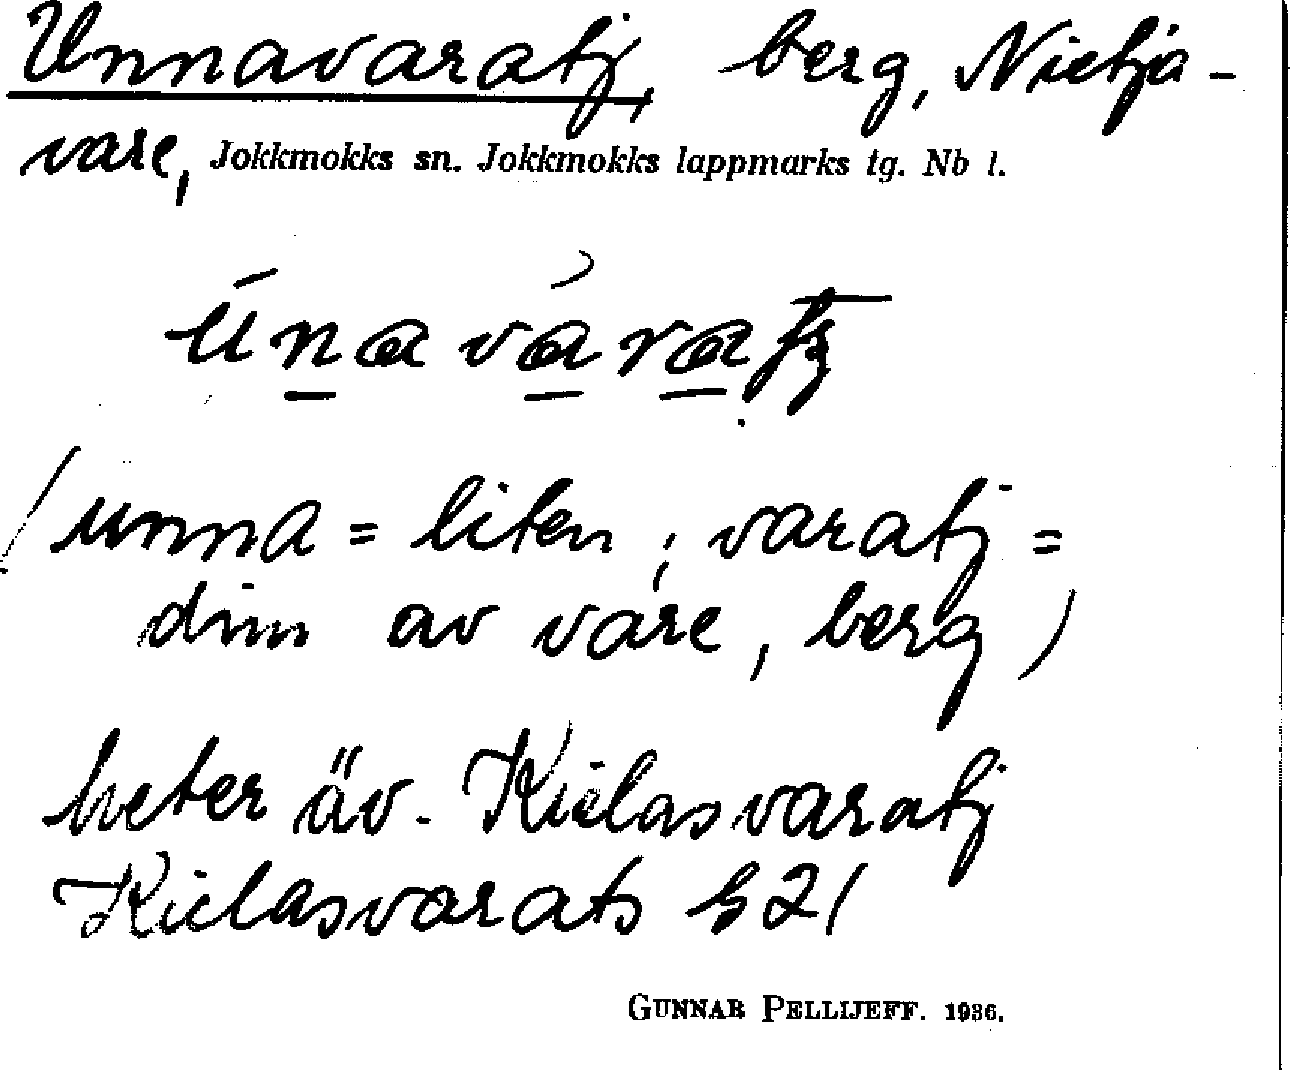 Unnavaratj, berg, Nietjа-
vare, Jokkmokks sn. Jokkmokks lappmarks tg. Nb l.
(unna = liten; varatj =
dim av vare, berg)
heter äv. Kielasvaratj
Kielasvarats b 21
GUNNAR PELLIJEFF. 1936.